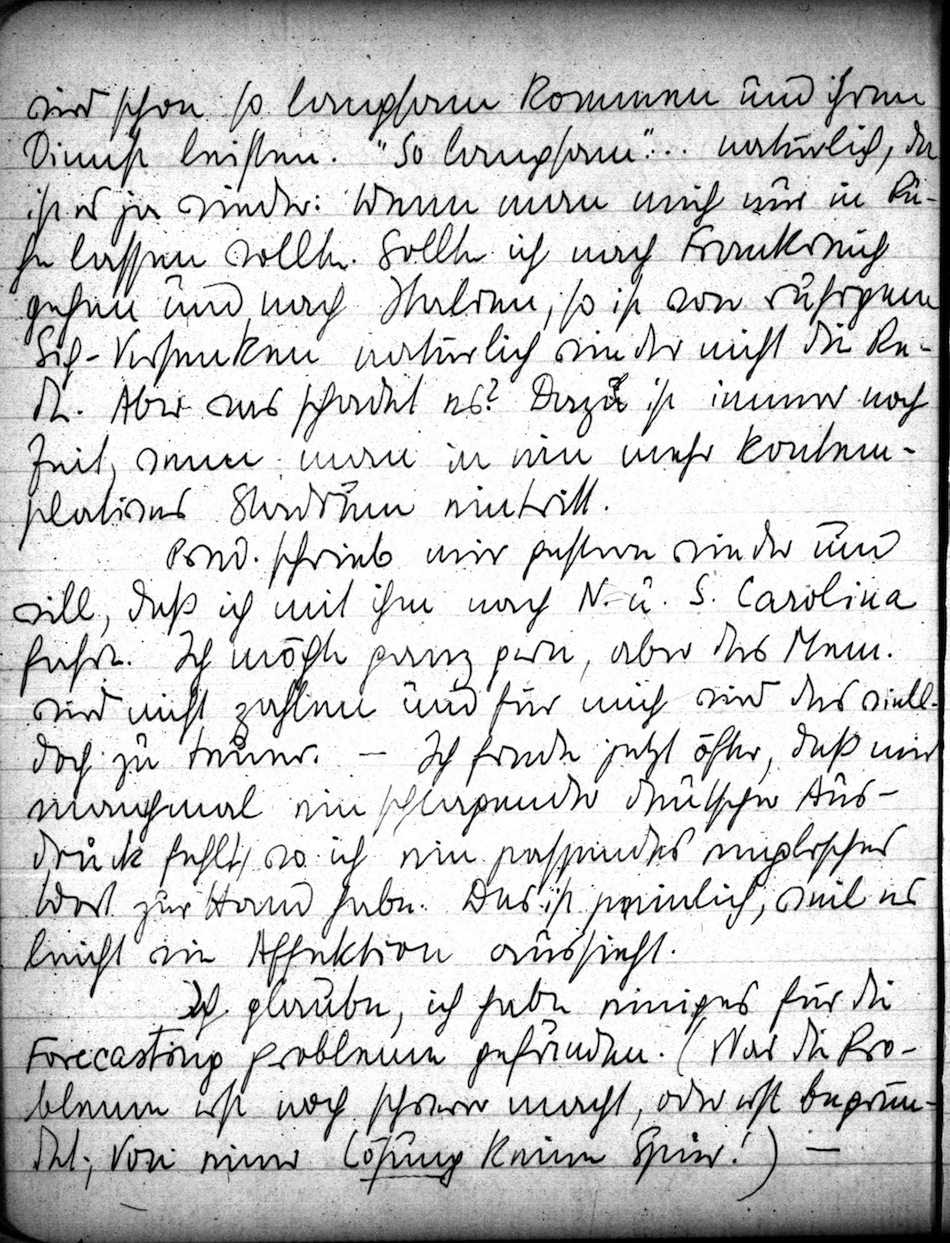 wird schon so langsam kommen und ihren
Dienst leisten. "So langsam"... natürlich, da
ist es ja wieder: Wenn man mich nur in Ru-
he lassen wollte. Sollte ich nach Frankreich
gehen und nach Italien, so ist von ruhigem
Sich-Versenken natürlich wieder nicht die Re-
de. Aber was schadet es? Dazu ist immer noch
Zeit, wenn man in ein mehr kontem-
platives Stadium eintritt.
schrieb mir gestern wieder und
will, daß ich mit ihm nach N. u. S. Carolina
fahre. Ich möchte ganz gern, aber das Mem.
wird nicht zahlen und für mich wird das viell.
doch zu teuer. — Ich finde jetzt öfter, daß mir
manchmal ein schlagender deutscher Aus-
druck fehlt, wo ich ein passendes englisches
Wort zur Hand habe. Das ist peinlich, weil es
leicht wie Affektion aussieht.
Ich glaube, ich habe einiges für die
Forecasting probleme gefunden. (Was die Pro-
bleme erst noch schwerer macht, oder erst begrün-
det; von einer Lösung keine Spur!) —